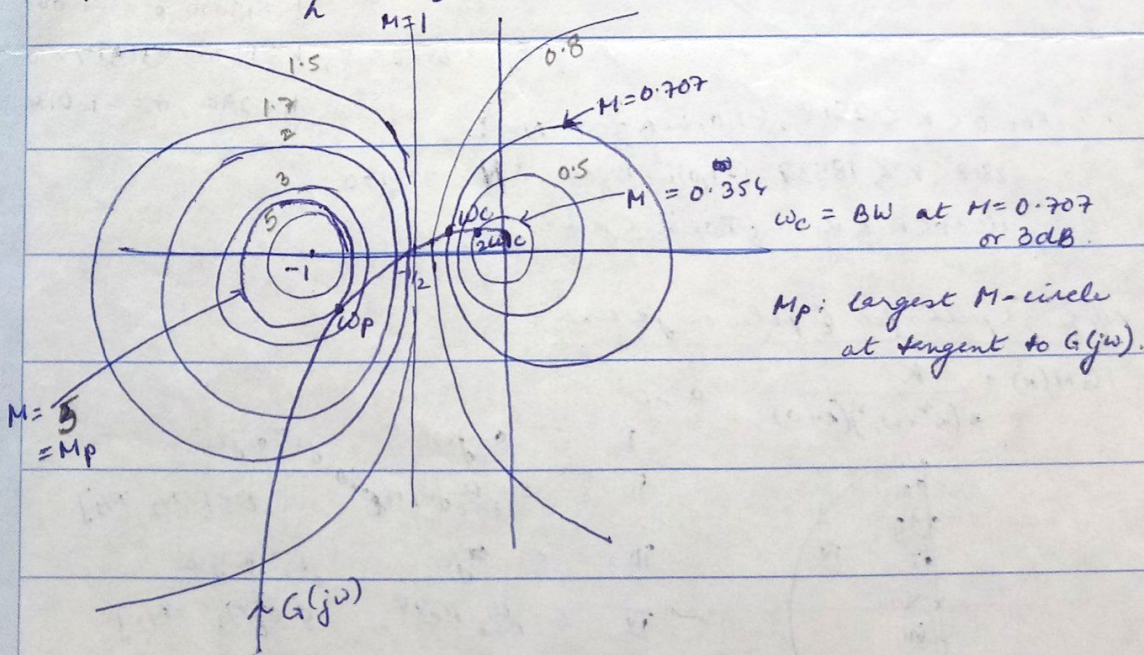 M=1
1.5
0.8
1.7
M=0.707
2
3
0.5
5
M = 0.354
ωc
2ωc
-1
-1/2
ωp
ωc = BW at M=0.707
or 3dB.
Mp: largest M-circle
at tengent to G(jω).
M= 5
=Mp
G(jω)